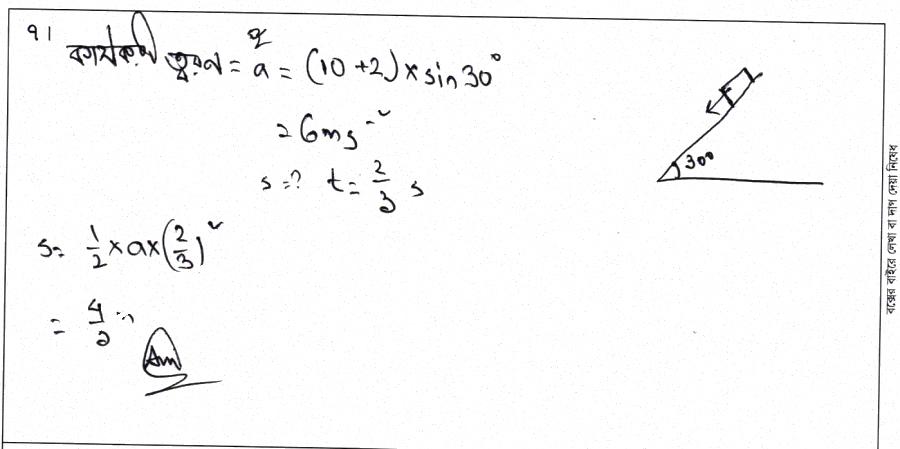 ৭। কার্যকরী ত্বরণ = a = (10 + 2) × sin 30°
= 6 ms⁻²
s = ? t = 2/3 s
30°
s = 1/2 × a × (2/3)²
= 4/3 m
Ans
বক্সের বাইরে লেখা বা দাগ দেয়া নিষেধ